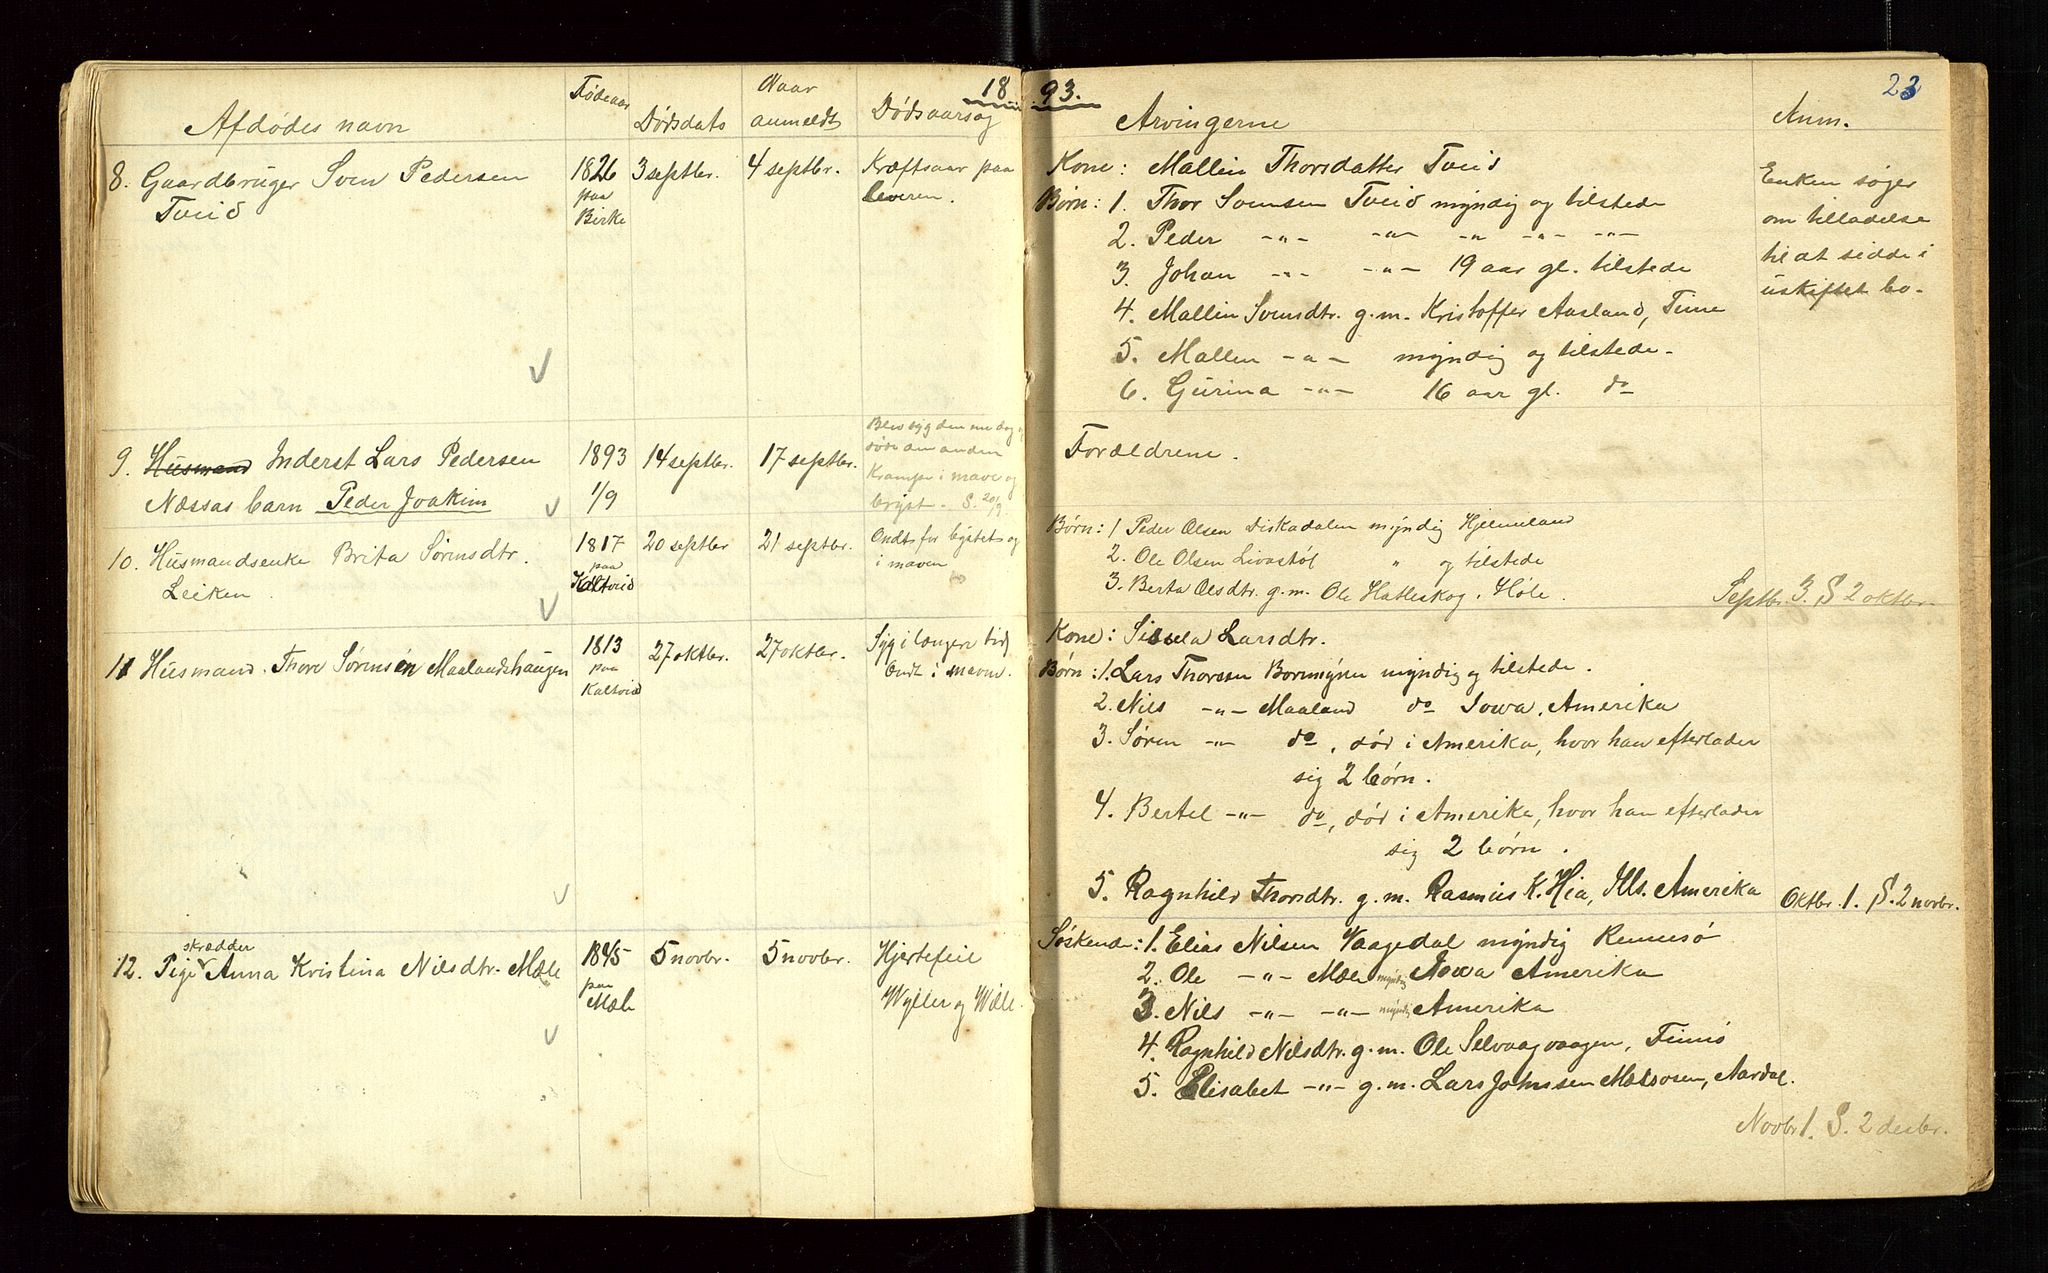 1893.
23
Afdødes navn
Fødeaar
Dødsdato
Naar anmeldt
Dødsaarsag
Arvingerne
Anm.
8. Gaardbruger Sven Pedersen
Tveid
1826
paa
Birke
3 septbr.
4 septbr.
Kræftsaar paa
leveren.
Kone: Mallin Thorsdatter Tveid
Børn: 1. Thor Svensen Tveid myndig og tilstede
2. Peder -"- -"- -"- -"- -"-
3. Johan -"- -"- 19 aar gl. tilstede
4. Mallin Svensdtr. g.m. Kristoffer Aasland, Time
5. Mallen -"- myndig og tilstede.
6. Gurina -"- 16 aar gl. do
Enken søger
om tilladelse
til at sidde i
uskiftet bo.
9. Husmand Inderst Lars Pedersen
Næssas barn Peder Joakim
1893
1/9
14 septbr.
17 septbr.
Blev syg den ene dag og
døde den anden
Krampe i mave og
bryst. S. 20/9.
Forældrene.
10. Husmandsenke Brita Sørensdtr.
Leiken.
1817
paa
Kaltveid
20 septbr
21 septbr.
Ondt for brystet og
i maven
Børn: 1 Peder Olsen Diskadalen myndig Hjelmeland
2. Ole Olsen Livastøl " og tilstede
3. Berta Olsdtr. g.m. Ole Hatleskog. Høle.
Septbr. 3. S 2 oktbr.
11 Husmand. Thore Sørensen Maalandshaugen
1813
paa
Kaltveid
27 oktbr.
27 oktbr.
Syg i længere tid
Ondt i maven.
Kone: Sissela Larsdtr.
Børn: 1. Lars Thorsen Bormyren myndig og tilstede.
2. Nils -"- Maaland do Iowa, Amerika
3. Søren -"- do, død i Amerika, hvor han efterlader
sig 2 børn.
4. Bertel -"- do, død i Amerika, hvor han efterlader
sig 2 børn.
5. Ragnhild Thorsdtr. g.m. Rasmus K. Hia, Ills. Amerika
Oktbr. 1. S. 2 novbr.
skrædder
12. Pige Anna Kristina Nilsdtr. Mæle
1845
paa
Mæle
5 novbr.
5 novbr.
Hjertefeil
Wyller og Wille.
Søskende: 1. Elias Nilsen Vaagedal myndig Rennesø
2. Ole -"- Mæle myndig Iowa Amerika
3. Nils -"- -"- myndig Amerika
4. Ragnhild Nilsdtr. g.m. Ole Selvaagvaagen, Finnø
5. Elisabet -"- g.m. Lars Johnsen Mælsosen, Aardal.
Novbr 1. S. 2 decbr.